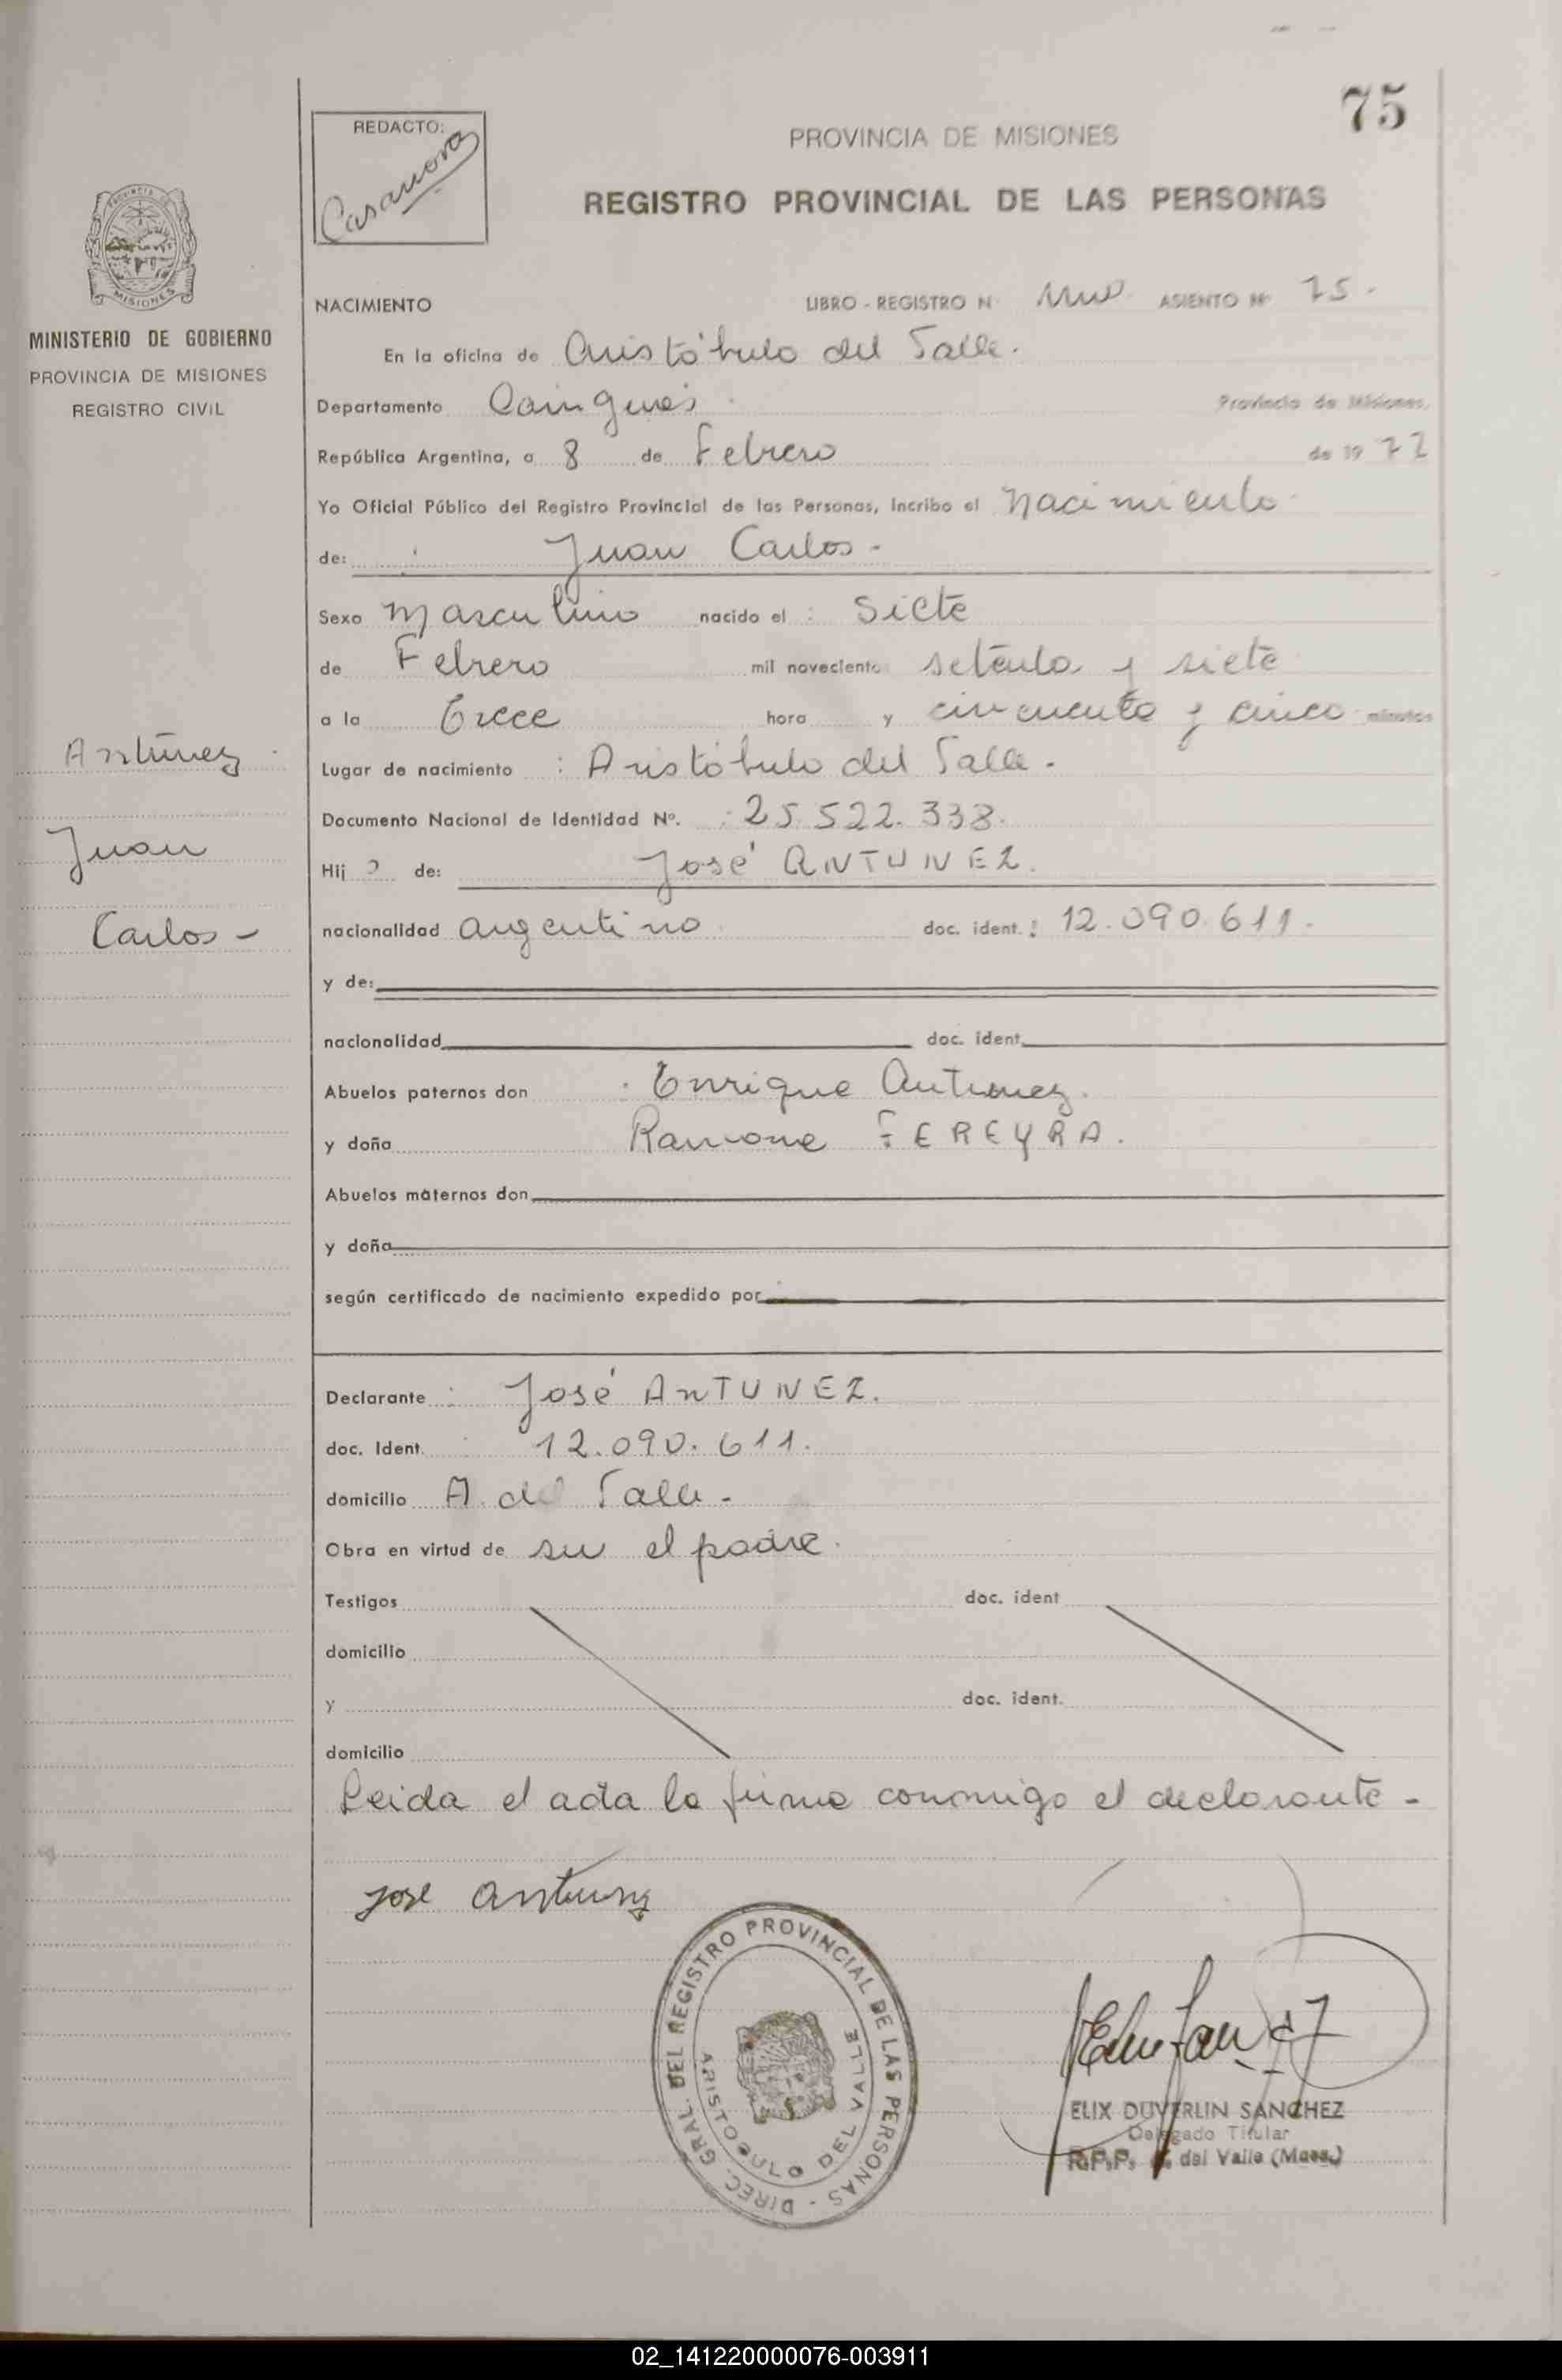 75
REDACTO:
Casanova
PROVINCIA DE MISIONES
REGISTRO PROVINCIAL DE LAS PERSONAS
MISIONES
MINISTERIO DE GOBIERNO
PROVINCIA DE MISIONES
REGISTRO CIVIL
NACIMIENTO LIBRO - REGISTRO N uno ASIENTO Nº 75.
En la oficina de Aristóbulo del Valle.
Departamento Cainguás Provincia de Misiones,
República Argentina, a 8 de Febrero de 1977
Yo Oficial Público del Registro Provincial de las Personas, incribo el Nacimiento
de: Juan Carlos.
Sexo Masculino nacido el : Siete
de Febrero mil novecientos setenta y siete
a la Trece hora y cincuenta y cinco minutos
Antúnez
Juan
Carlos -
Lugar de nacimiento : Aristóbulo del Valle.
Documento Nacional de Identidad Nº. : 25.522.338.
Hij o de: José ANTUNEZ.
nacionalidad argentino doc. ident.: 12.090.611.
y de:
nacionalidad doc. ident.
Abuelos paternos don Enrique Antunez.
y doña Ramona FEREYRA.
Abuelos maternos don
y doña
según certificado de nacimiento expedido por
Declarante : José ANTUNEZ.
doc. Ident. 12.090.611.
domicilio A. del Valle.
Obra en virtud de su el padre.
Testigos doc. ident
domicilio
y doc. ident.
domicilio
Leida el acta la firma conmigo el declarante -
jose antunez
DIREC. GRAL. DEL REGISTRO PROVINCIAL DE LAS PERSONAS -
ARISTOBULO DEL VALLE
ELIX DUVERLIN SANCHEZ
Delegado Titular
R.P.P. A. del Valle (Mnes.)
02_141220000076-003911